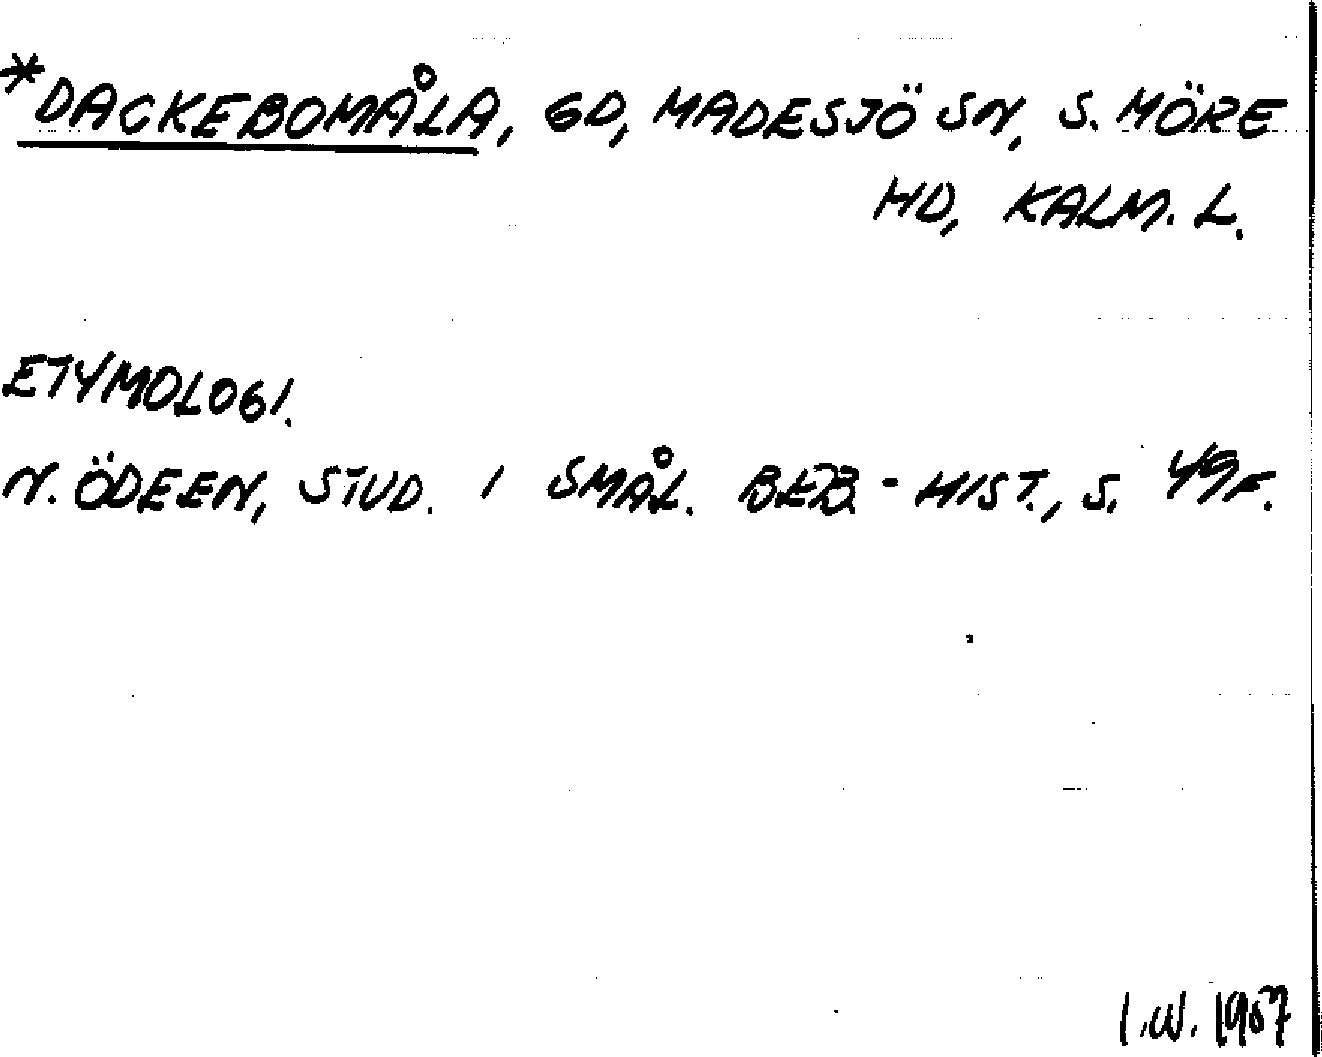 *DACKEBOMÅLA, GD, MADESJÖ SN, S. MÖRE
HD, KALM. L.
ETYMOLOGI.
N. ÖDEEN, STUD. I SMÅL. BEB.-HIST., S. 49F.
I.W. 1967